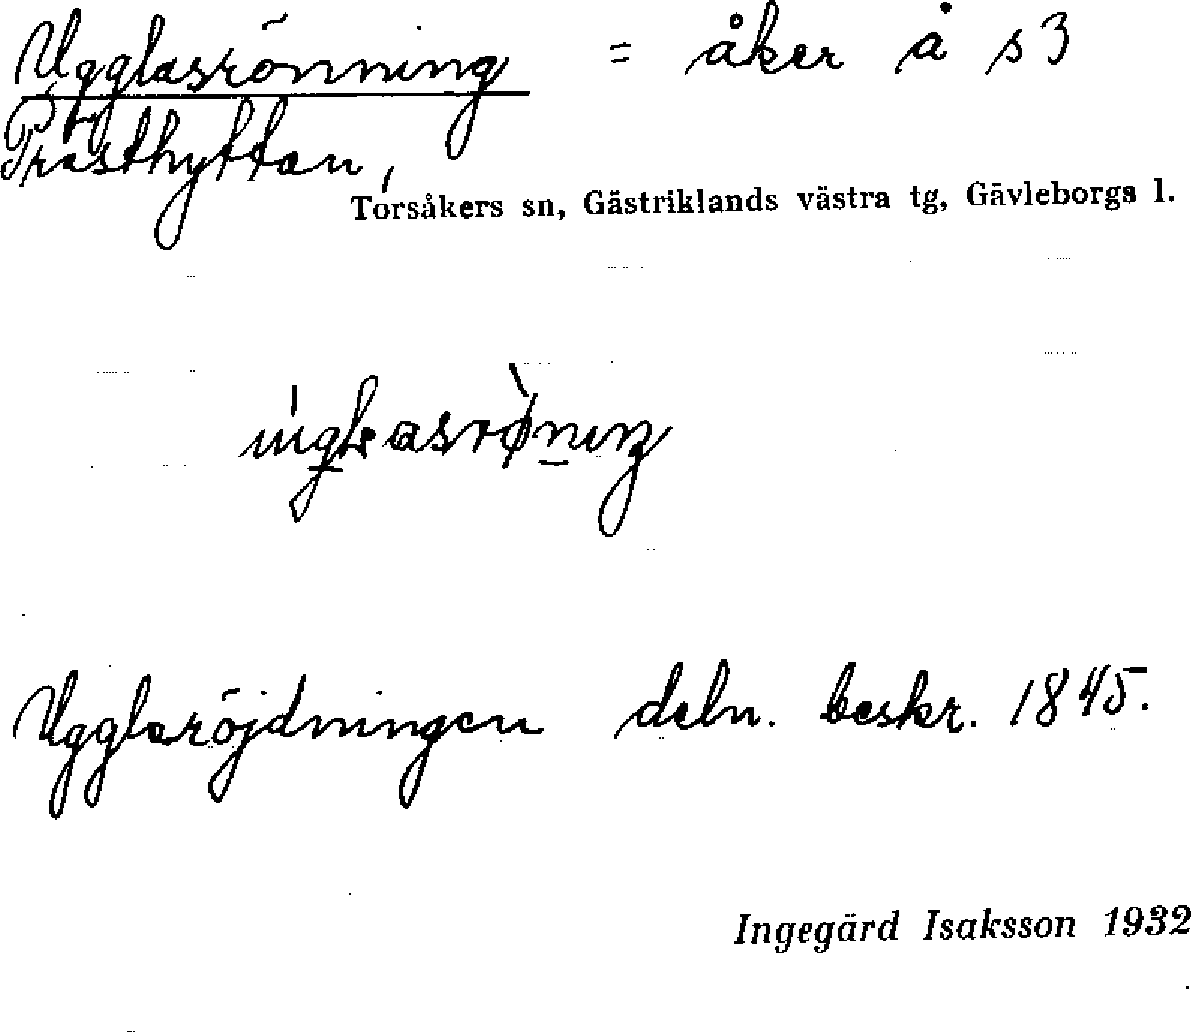 Ugglasrönning = åker å s 3
Prästhyttan,
Torsåkers sn, Gästriklands västra tg, Gävleborgs l.
Uggleröjdningen deln. beskr. 1845.
Ingegärd Isaksson 1932